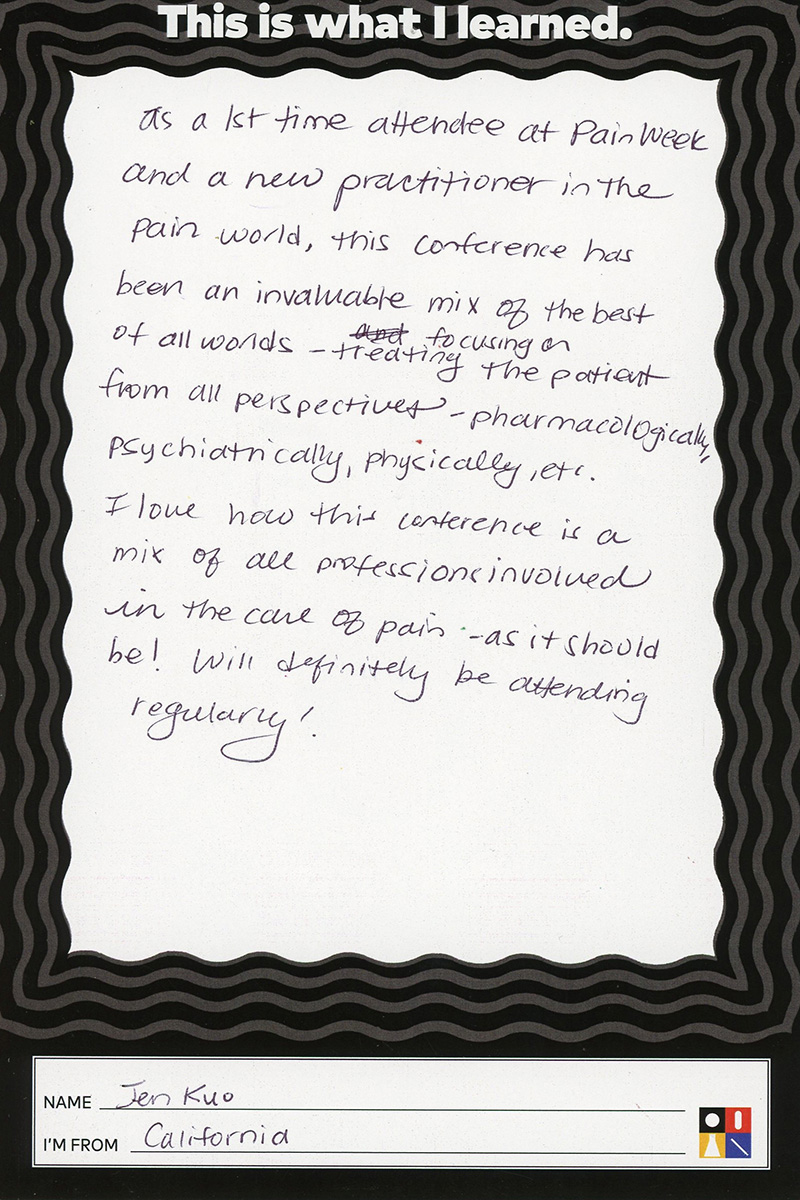 This is what I learned.
as a 1st time attendee at PainWeek
and a new practitioner in the
pain world, this conference has
been an invaluable mix of the best
of all worlds - and focusing on
treating the patient
from all perspectives - pharmacologically,
psychiatrically, physically, etc.
I love how this conference is a
mix of all professions involved
in the care of pain - as it should
be! Will definitely be attending
regularly!
NAME Jen Kuo
I'M FROM California